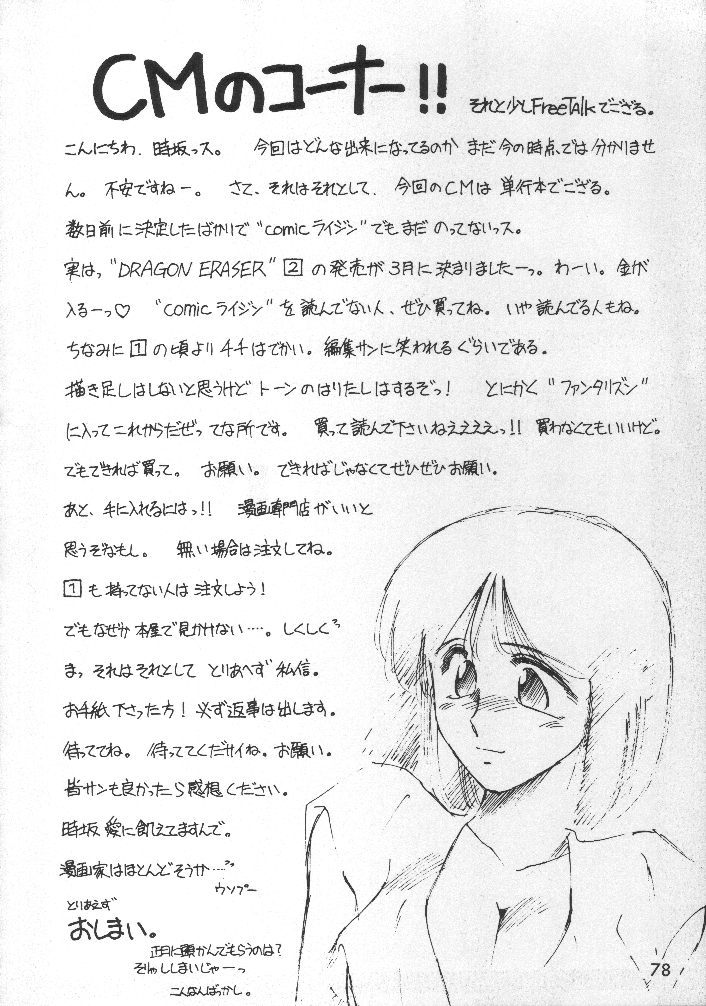 CMのコーナー!!
それと少しFreeTalkでござる。
こんにちわ、時坂っス。 今回はどんな出来になってるのか まだ今の時点では分かりませ
ん。 不安ですねー。 さて、それはそれとして、今回のCMは 単行本でござる。
数日前に決定したばかりで“comicライジン”でもまだ のってないっス。
実はっ“DRAGON ERASER” 2 の発売が3月に決まりましたーっ。わーい。金が
入るーっ♡ “comicライジン”を読んでない人、ぜひ買ってね。いや読んでる人もね。
ちなみに 1 の頃よりチチはでかい。編集サンに笑われるぐらいである。
描き足しはしないと思うけど トーンのはりたしはするぞっ! とにかく“ファンタリズン”
に入ってこれからだぜってな所です。 買って読んで下さいねええええっ!! 買わなくてもいいけど。
でもできれば買って。 お願い。 できればじゃなくてぜひぜひお願い。
あと、手に入れるにはっ!! 漫画専門店がいいと
思うぞなもし。 無い場合は注文してね。
1 も持ってない人は注文しよう!
でもなぜか本屋で見かけない…。しくしく
まっ それはそれとして とりあへず 私信。
お手紙下さった方! 必ず返事は出します。
待っててね。 待っててくだサイね。お願い。
皆サンも良かったら感想ください。
時坂 愛に飢えてますんで。
漫画家はほとんどそうか…
ウソプー
とりあえず
おしまい。
正月に頭かんでもらうのは?
そりゅししまいじゃーっ
こんなんばっかし。
78